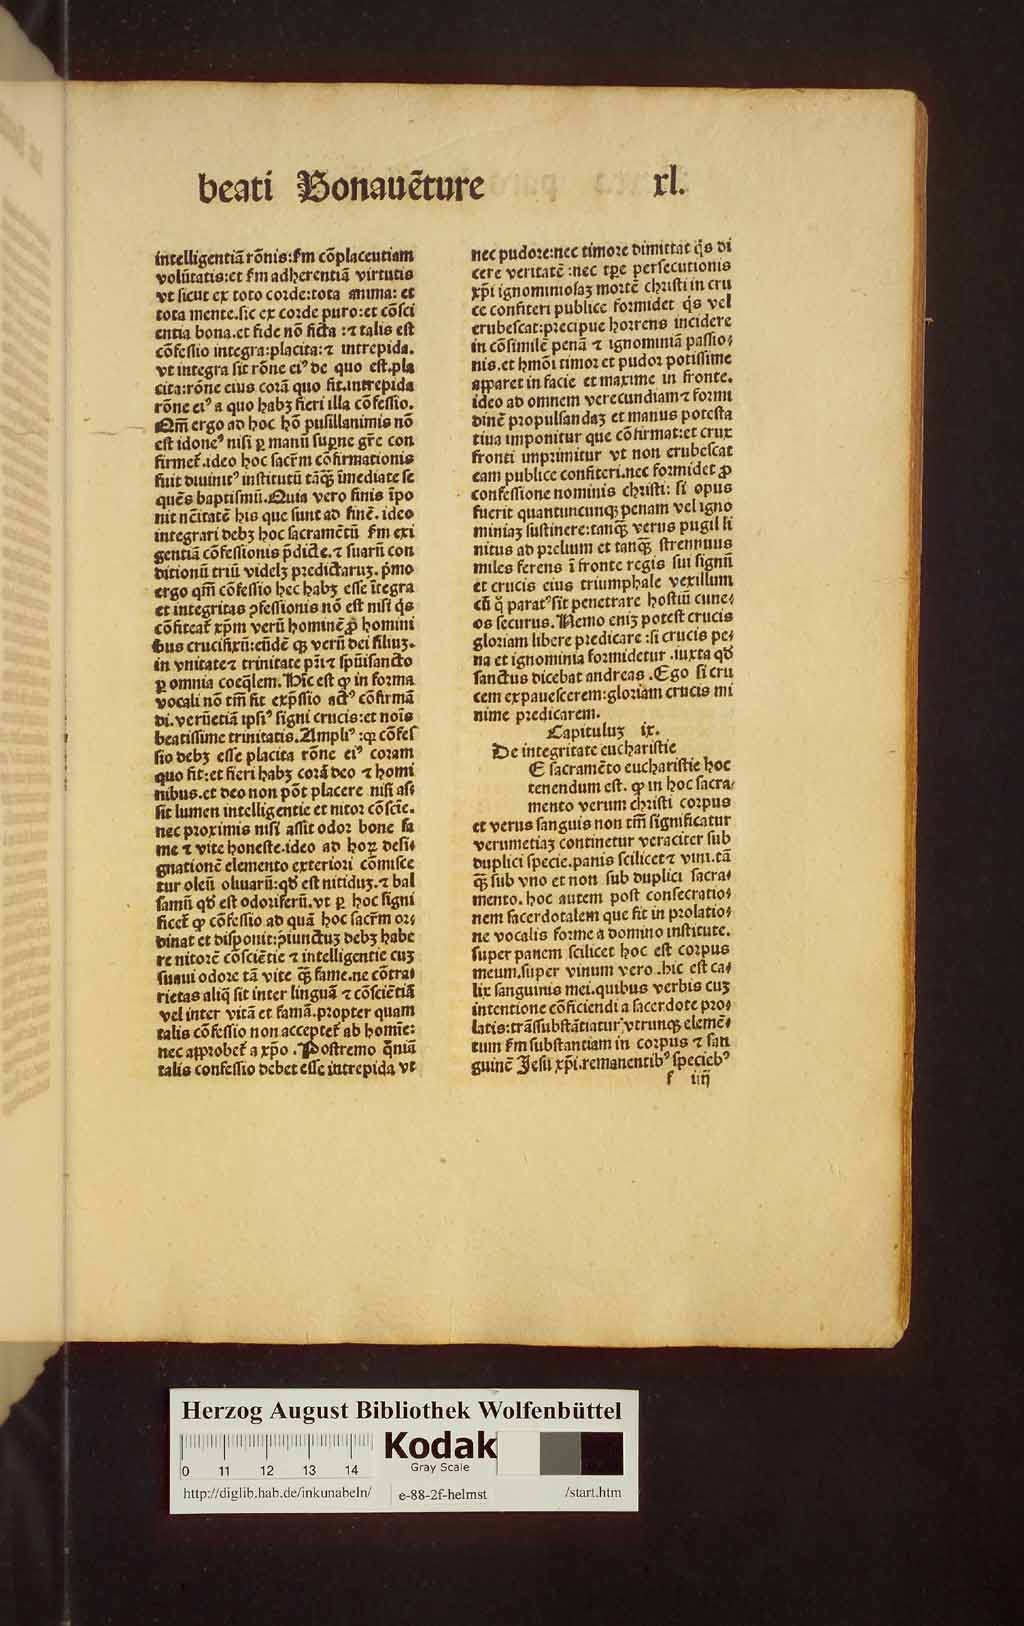 beati Bonauēture xl.
intelligentiā rōnis:ẜm cōplacentiam
volūtatis:et ẜm adherentiā virtutis
vt sicut ex toto corde:tota anima: et
tota mente.sic ex corde puro:et cōsci
entia bona.et fide nō ficta :⁊ talis est
cōfessio integra:placita:⁊ intrepida.
vt integra sit rōne eiꝰ de quo est.pla
cita:rōne eius corā quo fit.intrepida
rōne eiꝰ a quo habꝫ fieri illa cōfessio.
Qm̄ ergo ad hoc hō pusillanimis nō
est idoneꝰ nisi ꝑ manū suꝑne gr̄e con
firmet̄.ideo hoc sacr̄m cōfirmationis
fuit diuinitꝰ institutū tāꝙ̄ īmediate se
quēs baptismū.Quia vero finis īpo
nit nc̄itatē his que sunt ad finē. ideo
integrari debꝫ hoc sacramētū ẜm exi
gentiā cōfessionis p̄dicte.⁊ suarū con
ditionū triū videlꝫ predictaruꝫ. p̄mo
ergo qm̄ cōfessio hec habꝫ esse ītegra
et integritas ꝯfessionis nō est nisi q̄s
cōfiteat̄ xp̄m verū hominē ꝓ homini
bus crucifixū:eūdē qꝫ verū dei filiuꝫ.
in vnitate⁊ trinitate pr̄i⁊ sp̄uisancto
ꝑ omnia coeq̄lem.Hīc est ꝙ in forma
vocali nō tm̄ fit exp̄ssio actꝰ cōfirmā
di.verūetiā ipsiꝰ signi crucis:et noīs
beatissime trinitatis.Ampliꝰ :ꝙ cōfes
sio debꝫ esse placita rōne eiꝰ coram
quo fit:et fieri habꝫ corā deo ⁊ homi
nibus.et deo non pōt placere nisi as⸗
sit lumen intelligentie et nitor cōscīe.
nec proximis nisi assit odor bone fa
me ⁊ vite honeste.ideo ad hoꝝ desi⸗
gnationē elemento exteriori cōmisce
tur oleū oliuarū:qđ est nitiduꝫ.⁊ bal
samū qđ est odoriferū.vt ꝑ hoc signi
ficet̄ ꝙ cōfessio ad quā hoc sacr̄m or⸗
dinat et disponit:p̄iunctuꝫ debꝫ habe
re nitorē cōsciētie ⁊ intelligentie cuꝫ
suaui odore tā vite ꝙ̄ fame.ne cōtra⸗
rietas aliq̄ sit inter linguā ⁊ cōsciētiā
vel inter vitā et famā.propter quam
talis cōfessio non acceptet̄ ab homīe:
nec approbet̄ a xp̄o .Postremo q̄niā
talis confessio debet esse intrepida vt
nec pudore:nec timore dimittat q̄s di
cere veritatē :nec tp̄e persecutionis
xp̄i ignominiosaꝫ mortē christi in cru
ce confiteri publice formidet q̄s vel
erubescat:precipue horrens incidere
in cōsimilē penā ⁊ ignominiā passio⸗
nis.et hmōi timor et pudor potissime
apparet in facie et maxime in fronte.
ideo ad omnem verecundiam⁊ formi
dinē propulsandaꝫ et manus potesta
tiua imponitur que cōfirmat:et crux
fronti imprimitur vt non erubescat
eam publice confiteri.nec formidet ꝓ
confessione nominis christi: si opus
fuerit quantuncunqꝫ penam vel igno
miniaꝫ sustinere:tanꝙ̄ verus pugil li
nitus ad prelium et tanꝙ̄ strennuus
miles ferens ī fronte regis sui signū
et crucis eius triumphale vexillum
cū q̄ paratꝰ sit penetrare hostiū cune⸗
os securus.Nemo eniꝫ potest crucis
gloriam libere predicare :si crucis pe⸗
na et ignominia formidetur .iuxta qđ
sanctus dicebat andreas .Ego si cru
cem expauescerem:gloriam crucis mi
nime predicarem.
Capituluꝫ ix.
De integritate eucharistie
E sacramēto eucharistie hoc
tenendum est. ꝙ in hoc sacra⸗
mento verum christi corpus
et verus sanguis non tm̄ significatur
verumetiaꝫ continetur veraciter sub
duplici specie.panis scilicet⁊ vini.tā
ꝙ̄ sub vno et non sub duplici sacra⸗
mento. hoc autem post consecratio⸗
nem sacerdotalem que fit in prolatio⸗
ne vocalis forme a domino institute.
super panem scilicet hoc est corpus
meum.super vinum vero .hic est ca⸗
lix sanguinis mei.quibus verbis cuꝫ
intentione cōficiendi a sacerdote pro⸗
latis:trāssubstātiatur vtrunqꝫ elemē⸗
tum ẜm substantiam in corpus ⁊ san
guinē Jesu xp̄i.remanentibꝰ speciebꝰ
f iiij
Herzog August Bibliothek Wolfenbüttel
Kodak
Gray Scale
0 11 12 13 14
http://diglib.hab.de/inkunabeln/ e-88-2f-helmst /start.htm